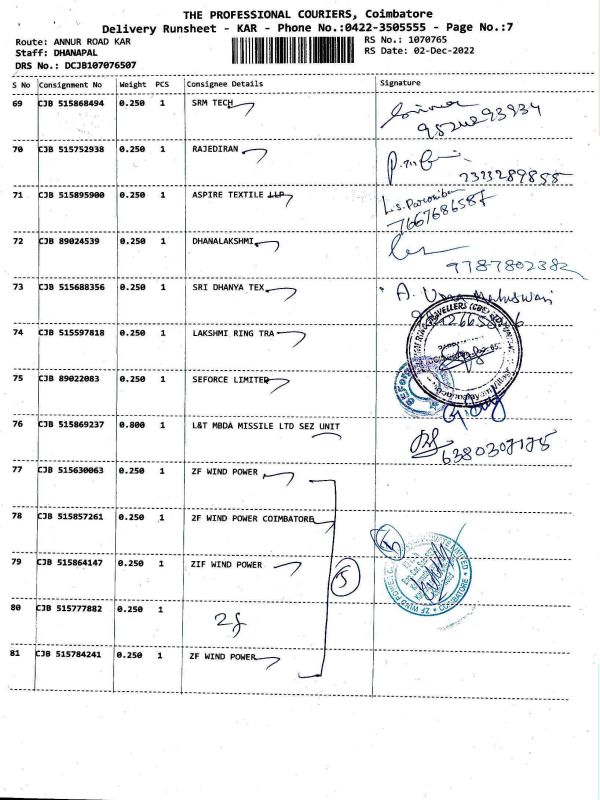 THE PROFESSIONAL COURIERS, Coimbatore
Delivery Runsheet - KAR - Phone No.:0422-3505555 - Page No.:7
Route: ANNUR ROAD KAR
Staff: DHANAPAL
DRS No.: DCJB107076507
RS No.: 1070765
RS Date: 02-Dec-2022
S No Consignment No Weight PCS Consignee Details Signature
69 CJB 515868494 0.250 1 SRM TECH
70 CJB 515752938 0.250 1 RAJEDIRAN
2323289855
71 CJB 515895900 0.250 1 ASPIRE TEXTILE LLP
7667686587
72 CJB 89024539 0.250 1 DHANALAKSHMI
9787802382
73 CJB 515688356 0.250 1 SRI DHANYA TEX
A. Uma Maheswari
74 CJB 515597818 0.250 1 LAKSHMI RING TRA
75 CJB 89022083 0.250 1 SEFORCE LIMITED
76 CJB 515869237 0.800 1 L&T MBDA MISSILE LTD SEZ UNIT
6380307175
77 CJB 515630063 0.250 1 ZF WIND POWER
78 CJB 515857261 0.250 1 ZF WIND POWER COIMBATORE
79 CJB 515864147 0.250 1 ZIF WIND POWER
5
80 CJB 515777882 0.250 1 Zf
81 CJB 515784241 0.250 1 ZF WIND POWER